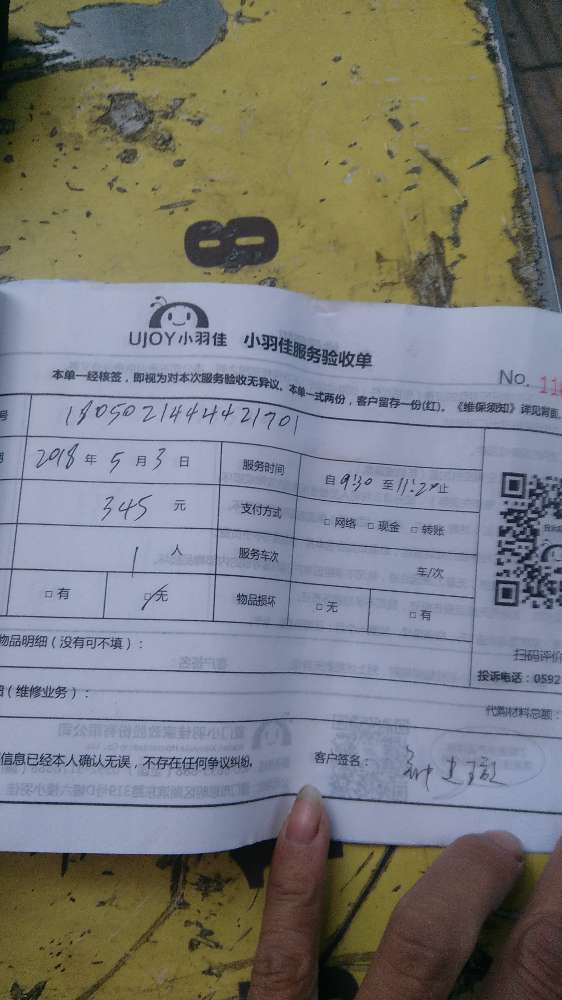 8
UJOY小羽佳 小羽佳服务验收单
No. 110
本单一经核签，即视为对本次服务验收无异议。本单一式两份，客户留存一份(红)。《维保须知》详见背面。
号 1805021444421701
2018 年 5 月 3 日 服务时间 自 9:30 至 11:20 止
345 元 支付方式 □ 网络 □ 现金 □ 转账
1 人 服务车次 车/次
□ 有 □ 无 物品损坏 □ 无 □ 有
扫码评价
物品明细（没有可不填）：
投诉电话：0592
（维修业务）：
代购材料总额：
信息已经本人确认无误，不存在任何争议纠纷。 客户签名：